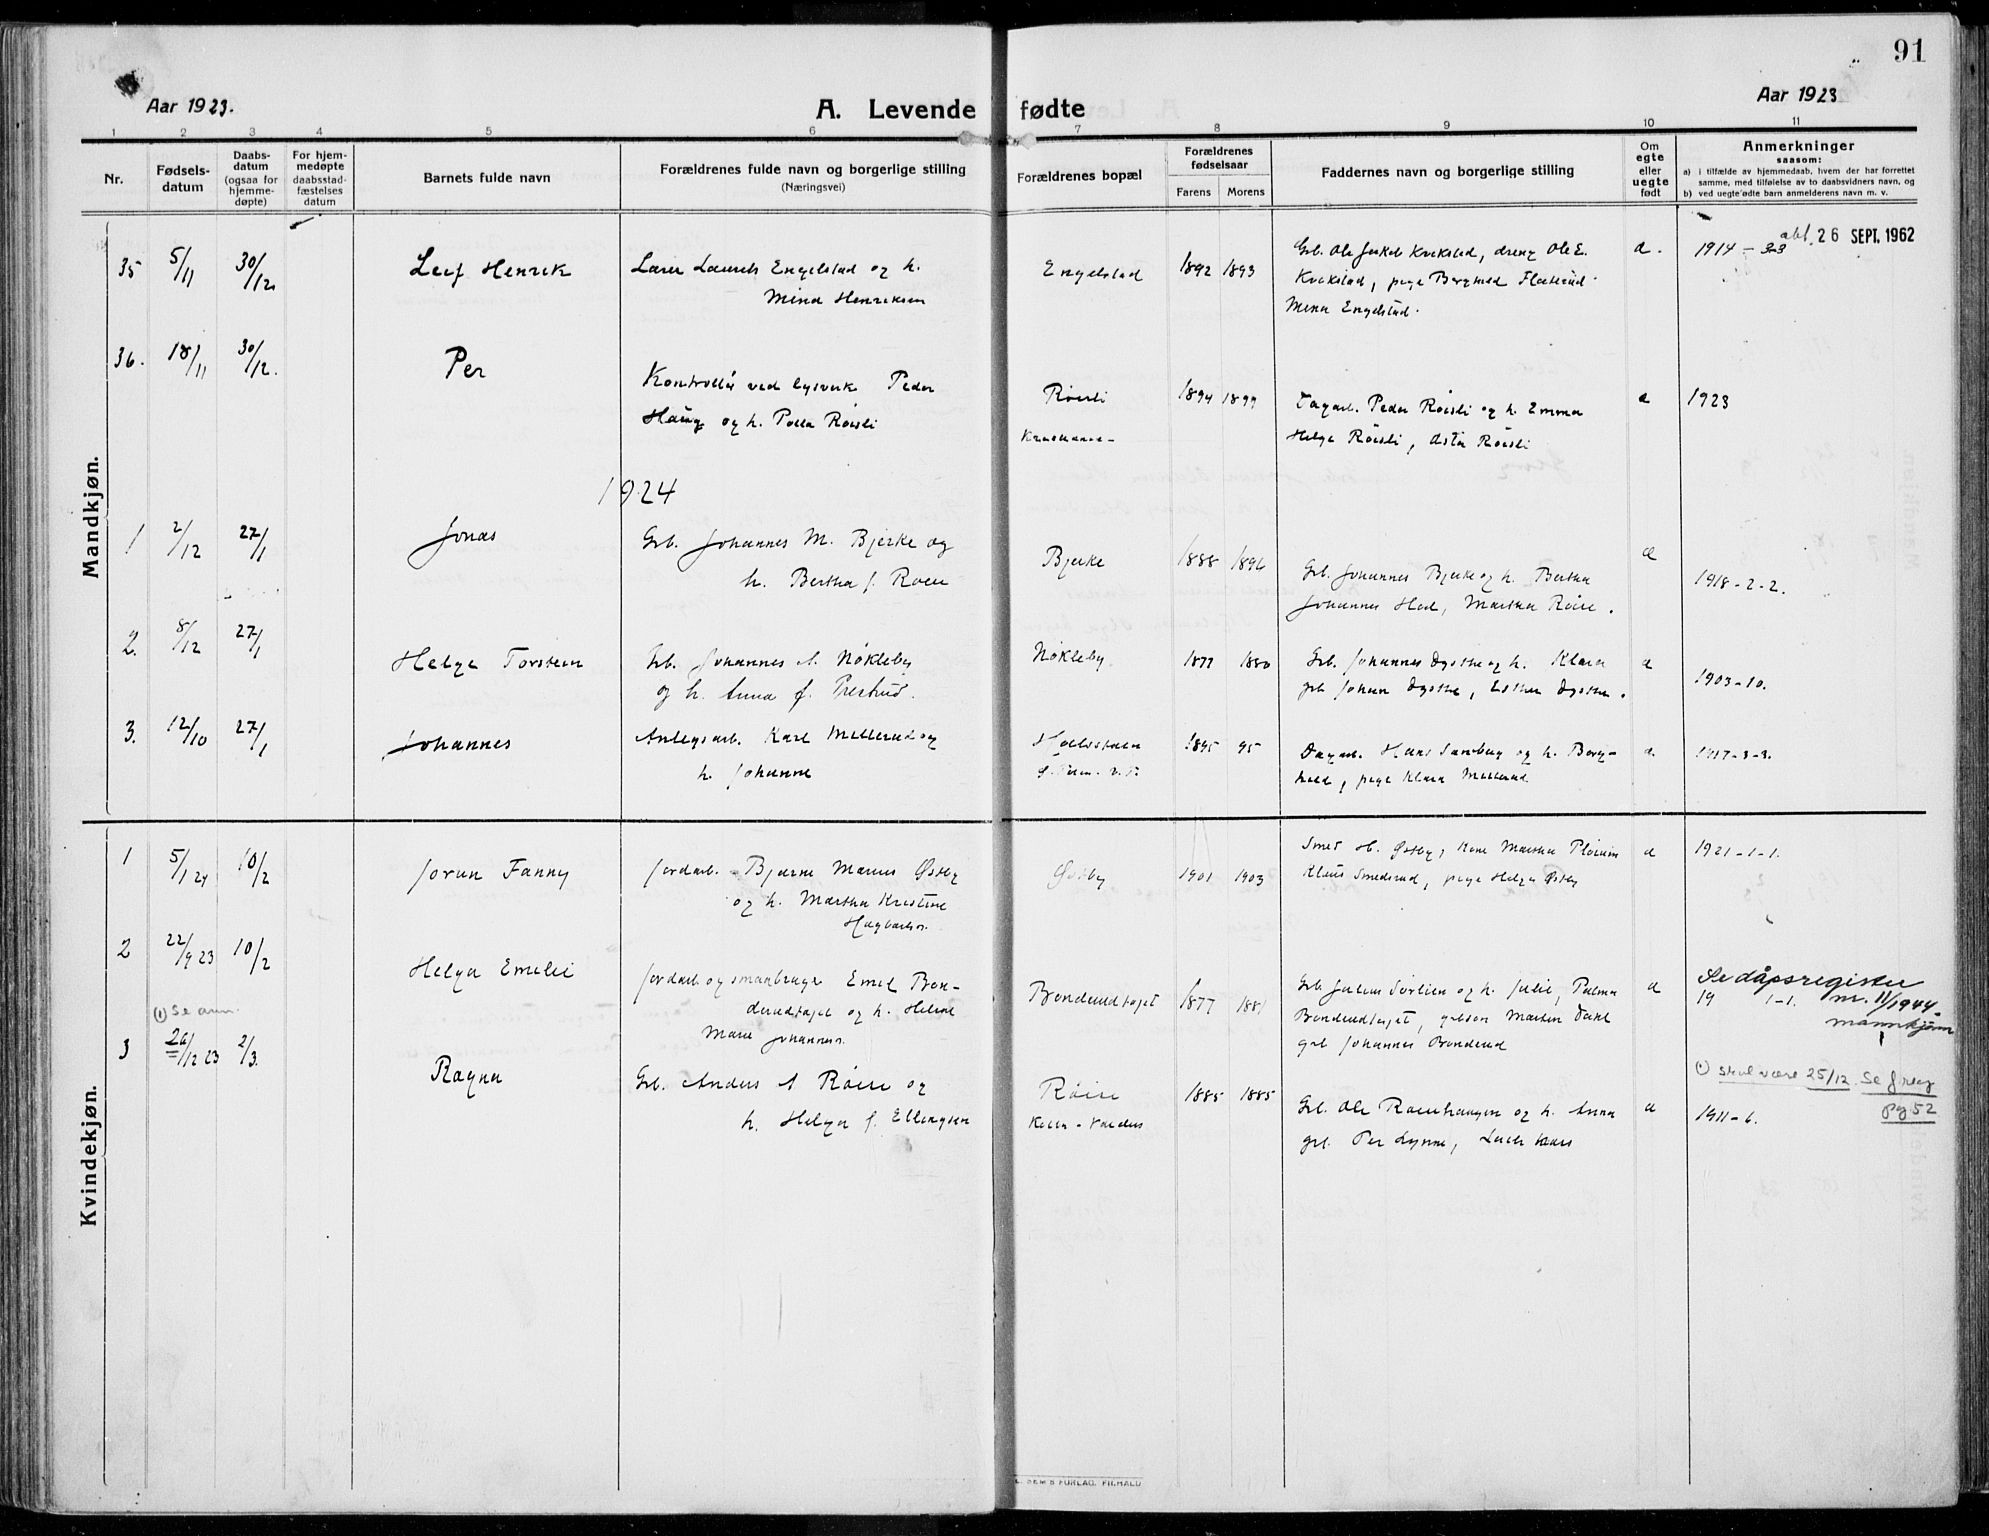 91
Aar 1923.
A. Levende fødte
Aar 1923
1 2 3 4 5 6 7 8 9 10 11
Nr.
Fødsels-
datum
Daabs-
datum
(ogsaa for
hjemme-
døpte)
For hjem-
medøpte
daabsstad-
fæstelses
datum
Barnets fulde navn
Forældrenes fulde navn og borgerlige stilling
(Næringsvei)
Forældrenes bopæl
Forældrenes
fødselsaar
Farens Morens
Faddernes navn og borgerlige stilling
Om
egte
eller
uegte
født
Anmerkninger
saasom:
a) i tilfælde av hjemmedaab, hvem der har forrettet
samme, med tilføielse av to daabsvidners navn, og
b) ved uegte fødte barn anmelderens navn m. v.
Mandkjøn.
35 5/11 30/12 Leif Henrik
Lærer Laurits Engelstad og h.
Mina Henriksen
Engelstad 1892 1893
Grb. Ole Kvikstad, dreng Ole E.
Kvikstad, pige Berghild
Mina Engelstad.
æ. 1914 - 33
att. 26 SEPT. 1962
36. 18/11 30/12. Per
Kontrollør ved lysverk Peder
Haug og h. Røisli
Røisli 1894 1899
Dagarb. Peder Røisli og h. Emma
Helge Røisli, Asta Røisli
æ 1923
1924
1 2/12 27/1 Jonas
Grb. Johannes M. Bjerke og
h. Bertha f. Roen
Bjerke 1888 1896
Grb. Johannes Bjerke og h. Bertha
Johannes Martha Røise.
æ 1918-2-2.
2. 8/12 27/1 Helge Torstein
Grb. Johannes A. Nøkleby
og h. Anna f. Prestrud.
Nøkleby 1877 1880
Grb. Johannes Dyste og h. Klara
grb Johan Dyste, Esther Dyste.
æ 1903-10.
3. 12/10 27/1 Johannes
Anlegsarb. Karl Mellerud og
h. Johanne
1895 95
Dagarb. Hans Sandberg og h. Berg-
hild, pige Klara Mellerud
æ 1917-3-3.
Kvindekjøn.
1 5/1 24 10/2 Jorun Fanny
Jordarb. Bjarne Marius Østby
og h. Martha Kristine
Hagbartsn.
Østby 1901 1903
Smed H. Østby, Kone Martha
Klaus Smedsrud, pige Helga Østby
æ 1921-1-1.
2 22/9 23 10/2 Helga Emilie
Jordarb og smaabruger Emil Bon-
derudtajet og h. Helene
Marie Johannesn.
Bonderudtajet 1877 1881
Grb Julius Sørlien og h. Julie, Palma
Bonderudtajet, grbsøn Martin Dahl
grb Johannes Bonderud
æ
Se dåpsregister
19 1-1. nr. 11/1944-
mannkjønn
(1) Se anm.
3 26/12 23 2/3. Ragna
Grb. Anders A Røise og
h. Helga f. Ellingsen
Røise 1885 1885
Grb. Ole Roenhaugen og h. Anna
grb. Per Lynne,
æ
(1) skal være 25/12. Se f.reg
pg 52
1911-6.
FORLAG. F.HALD